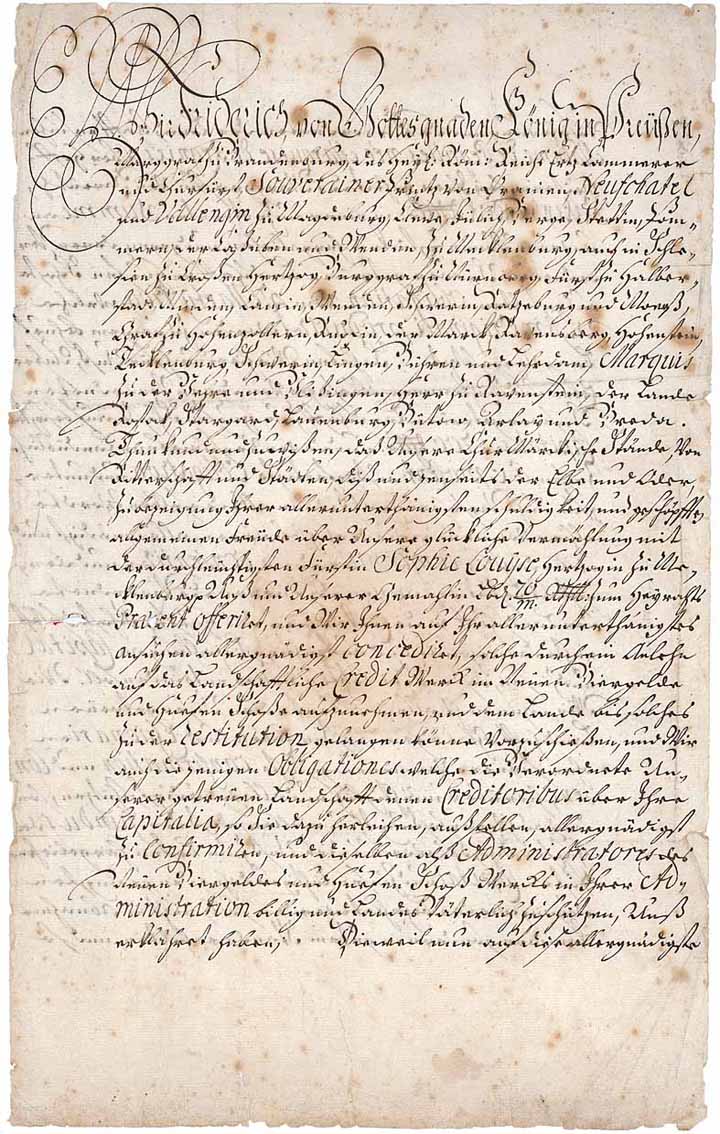 Wir Friderich von Gottes gnaden König in Preüßen,
Marggraf zu Brandenburg, des Heyl. Röm: Reichs Ertz Cammerer
und Churfürst, Souverainer Printz von Oranien, Neufchatel
und Vallengin, zu Magdeburg, Cleve, Jülich, Berge, Stettin, Pom-
mern, der Caßuben und Wenden, zu Mecklenburg, auch in Schle-
sien zu Croßen Hertzog, Burggraf zu Nürnberg, Fürst zu Halber-
stadt, Minden, Camin, Wenden, Schwerin, Ratzeburg und Moerß,
Graf zu Hohenzollern, Ruppin, der Marck, Ravensberg, Hohenstein,
Tecklenburg, Schwerin, Lingen, Bühren und Lehrdam, Marquis
zu der Vehre und Vlißingen, Herr zu Ravenstein, der Lande
Rostock, Stargard, Lauenburg, Bütow, Arlay und Breda.
Thun kund und zu wißen, daß Unsere Chur Märckische Stände, von
Ritterschafft und Städten, diß und jenseits der Elbe und Oder,
zu bezeigung Ihrer allerunterthänigsten schuldigkeit, und geschöpfften
allgemeinen Freüde über Unsere glückliche Vermählung mit
der durchleüchtigsten Fürstin Sophie Louyse Hertzogin zu Me-
cklenburg p Unß und Unserer Gemahlin 70/m. zum Heyraths
Præsent offeriret, und Wir Ihnen auf Ihr allerunterthänigstes
ansuchen allergnädigst concediret, solche durch ein Anlehn
auf das Landschafftliche Credit Werck im Neüen Biergelde
und Huefen Schoße aufzunehmen, und dem Lande bis solches
zu der restitution gelangen könne vorzuschießen, und Wir
auch die jenigen Obligationes welche die Verordnete Un-
serer getreüen Landschafft denen Creditoribus über Ihre
Capitalia, so sie dazu herleihen, außstellen, allergnädigst
zu Confirmiren, und dieselben alß Administratores des
Neüen Biergeldes und Huefen Schoß Wercks in Ihrer Ad-
ministration billig und Landes Väterlich zu schützen, Unß
erklähret haben, Dieweil nun auf diese allergnädigste